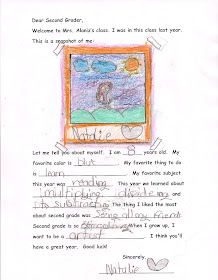 Dear Second Grader,
Welcome to Mrs. Alaniz's class. I was in this class last year.
This is a snapshot of me:
Natalie
Let me tell you about myself. I am 8 years old. My
favorite color is blue. My favorite thing to do
is learn. My favorite subject
this year was reading. This year we learned about
multiplying, and
subtracting. The thing I liked the most
about second grade was seing all my friends.
Second grade is so. When I grow up, I
want to be a artist. I think you'll
have a great year. Good luck!
Sincerely,
Natalie